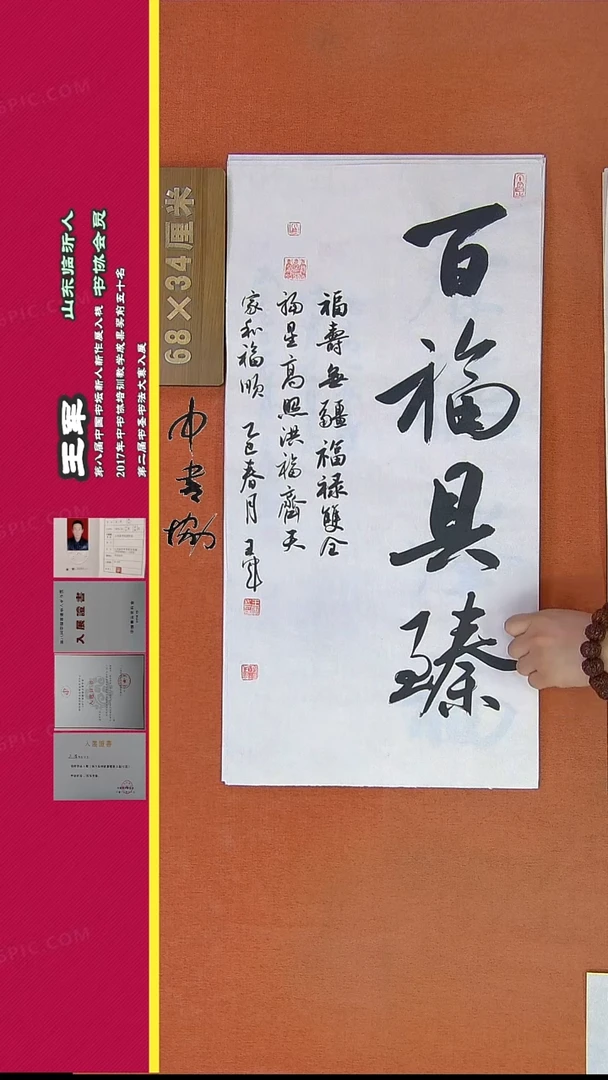 百福具臻
福壽無疆福祿雙全
福星高照洪福齊天
家和福順 乙巳春月 王军
68×34厘米
中书协
山东临沂人
书协会员
王军
第八届中国书坛新人新作展入展
2017年中书协培训教学成果奖前五十名
第二届书圣书法大赛入展
入展證書